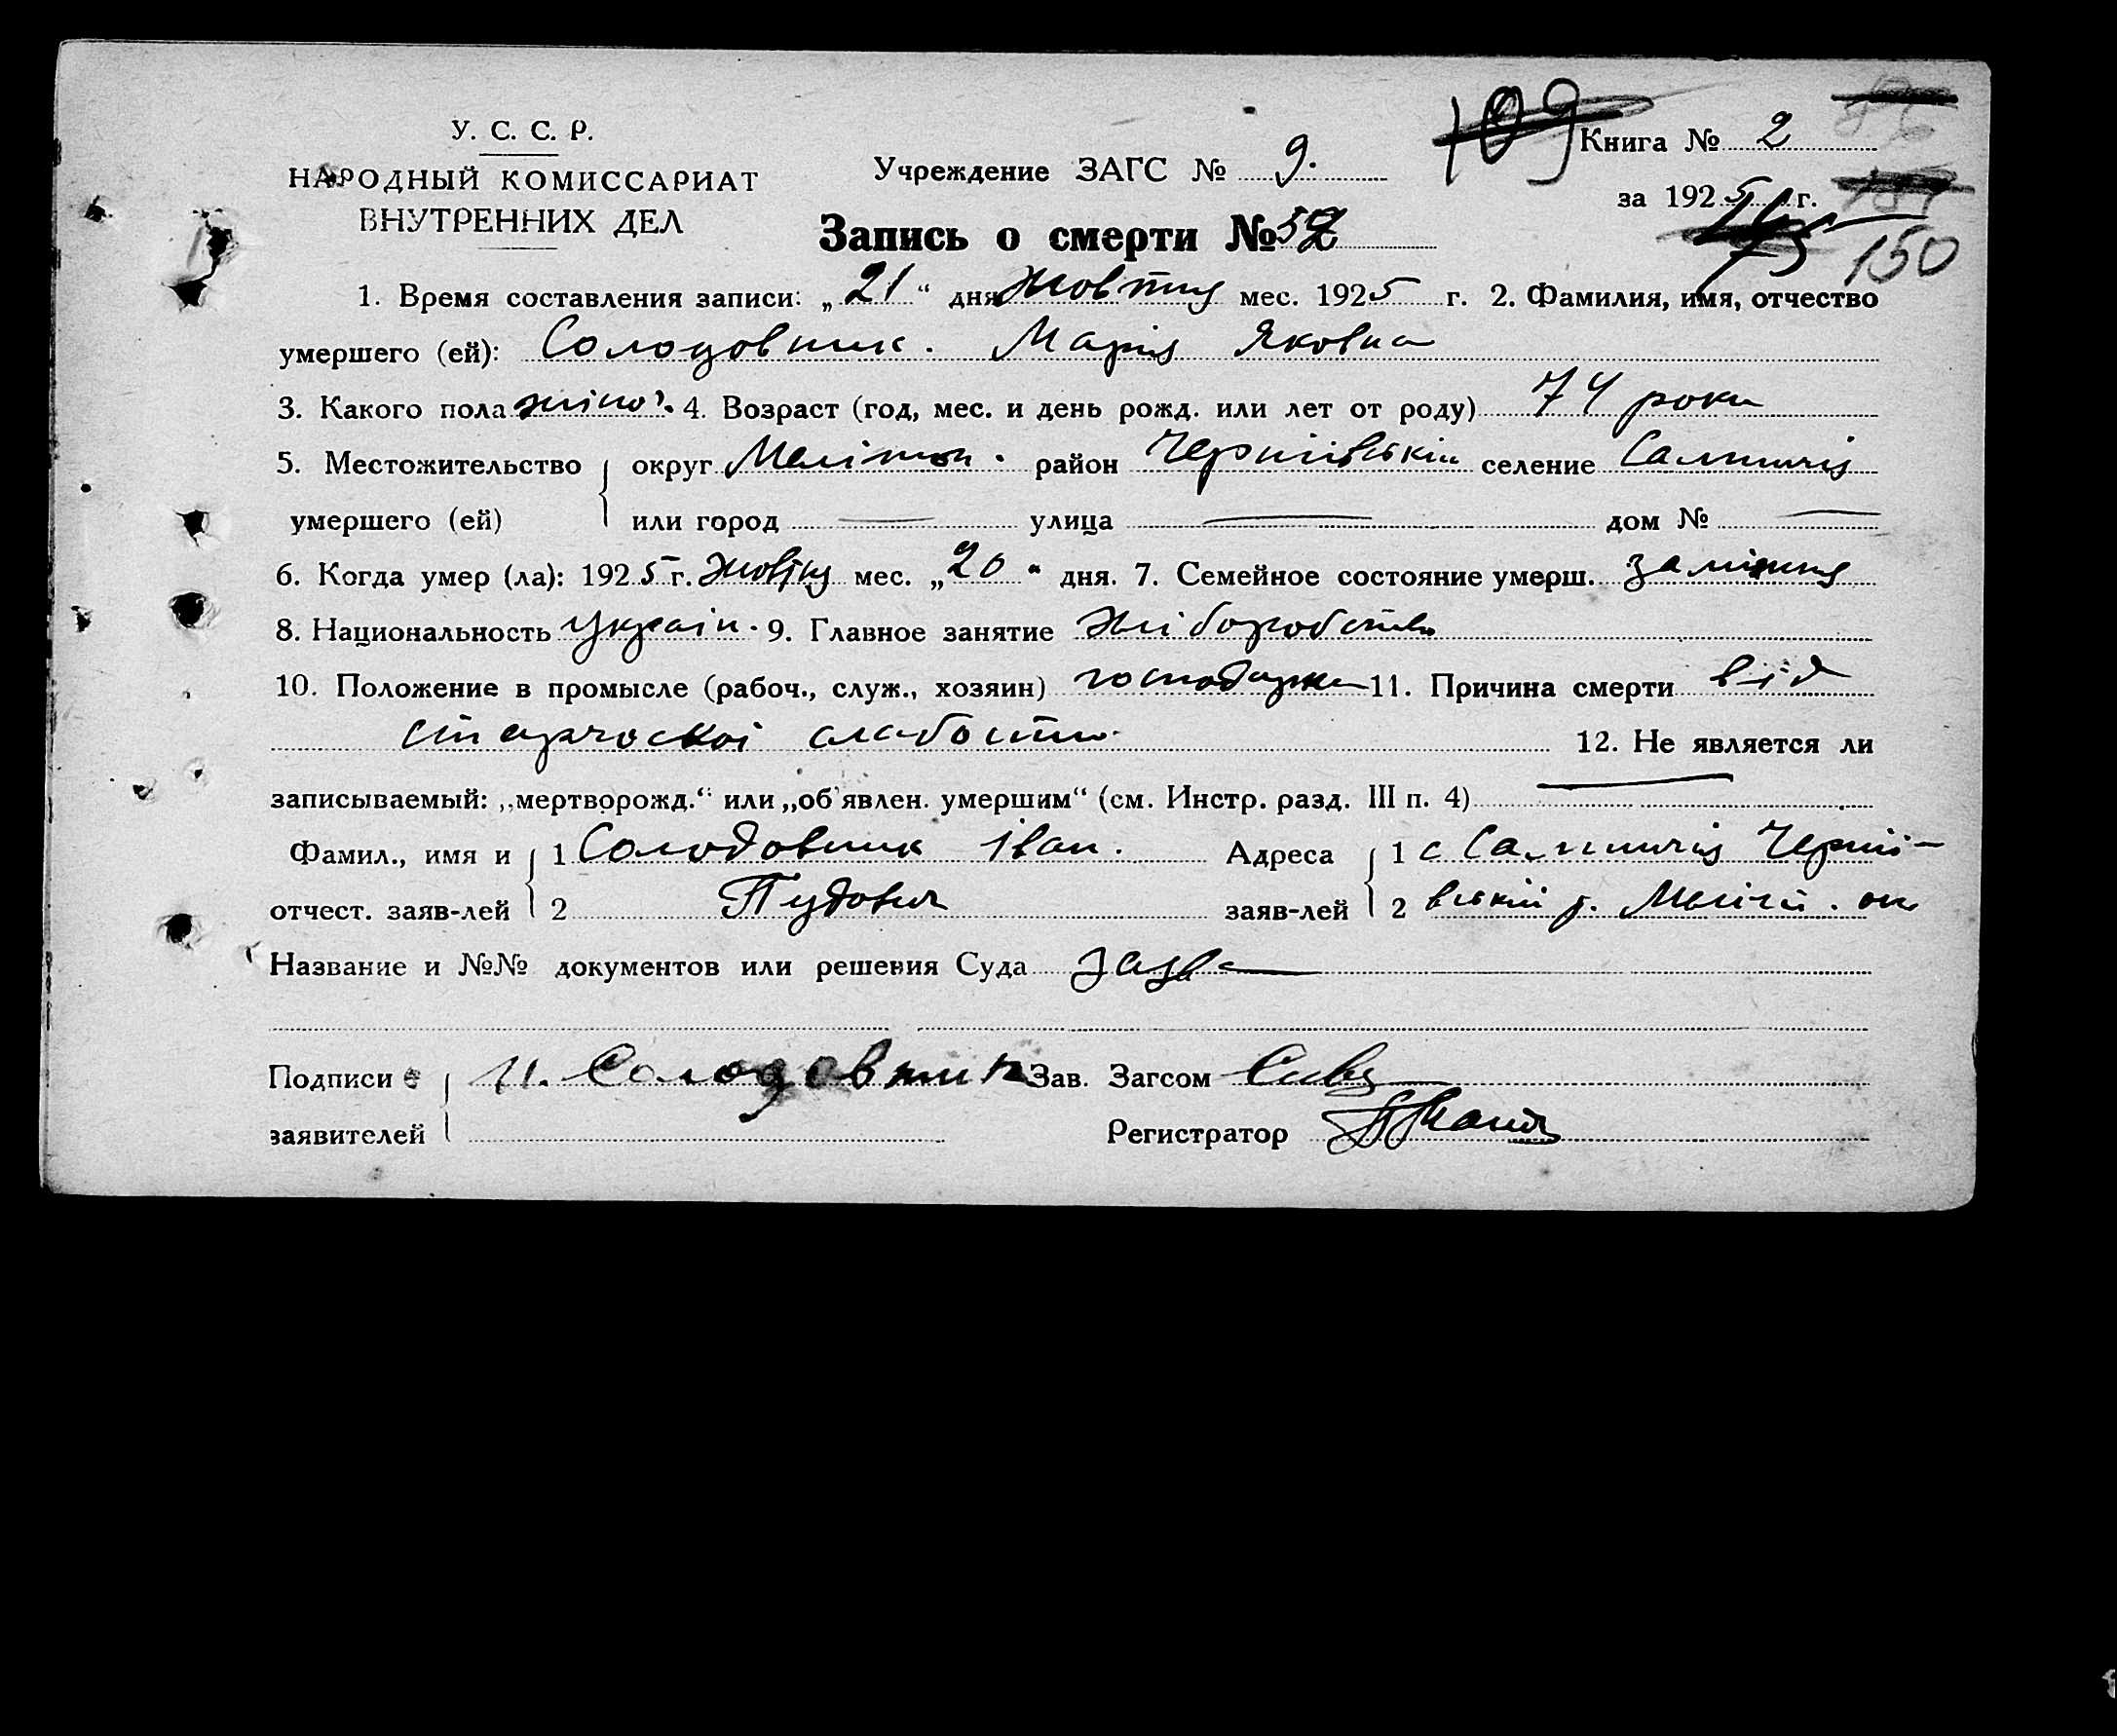 У. С. С. Р.
НАРОДНЫЙ КОМИССАРИАТ
ВНУТРЕННИХ ДЕЛ
Учреждение ЗАГС № 9.
109
Книга № 2
за 1925 г.
150
Запись о смерти №
1. Время составления записи: „21“ дня жовтня мес. 1925 г. 2. Фамилия, имя, отчество
умершего (ей): Солодовник. Марія Яковна
3. Какого пола жіно. 4. Возраст (год, мес. и день рожд. или лет от роду) 74 роки
5. Местожительство округ Меліт. район Чернігівський селение
умершего (ей) или город — улица — дом № —
6. Когда умер (ла): 1925 г. жовтня мес. „20“ дня. 7. Семейное состояние умерш. заміжня
8. Национальность україн. 9. Главное занятие хліборобство
10. Положение в промысле (рабоч., служ., хозяин) господарка 11. Причина смерти від
старческої слабости.
12. Не является ли
записываемый: „мертворожд.“ или „об'явлен. умершим“ (см. Инстр. разд. III п. 4) —
Фамил., имя и 1 Солодовник Іван. Адреса 1 с
отчест. заяв-лей 2 Пудович заяв-лей 2 вський р. Меліт. ок
Название и №№ документов или решения Суда заява
Подписи И. Солодовник Зав. Загсом
заявителей Регистратор